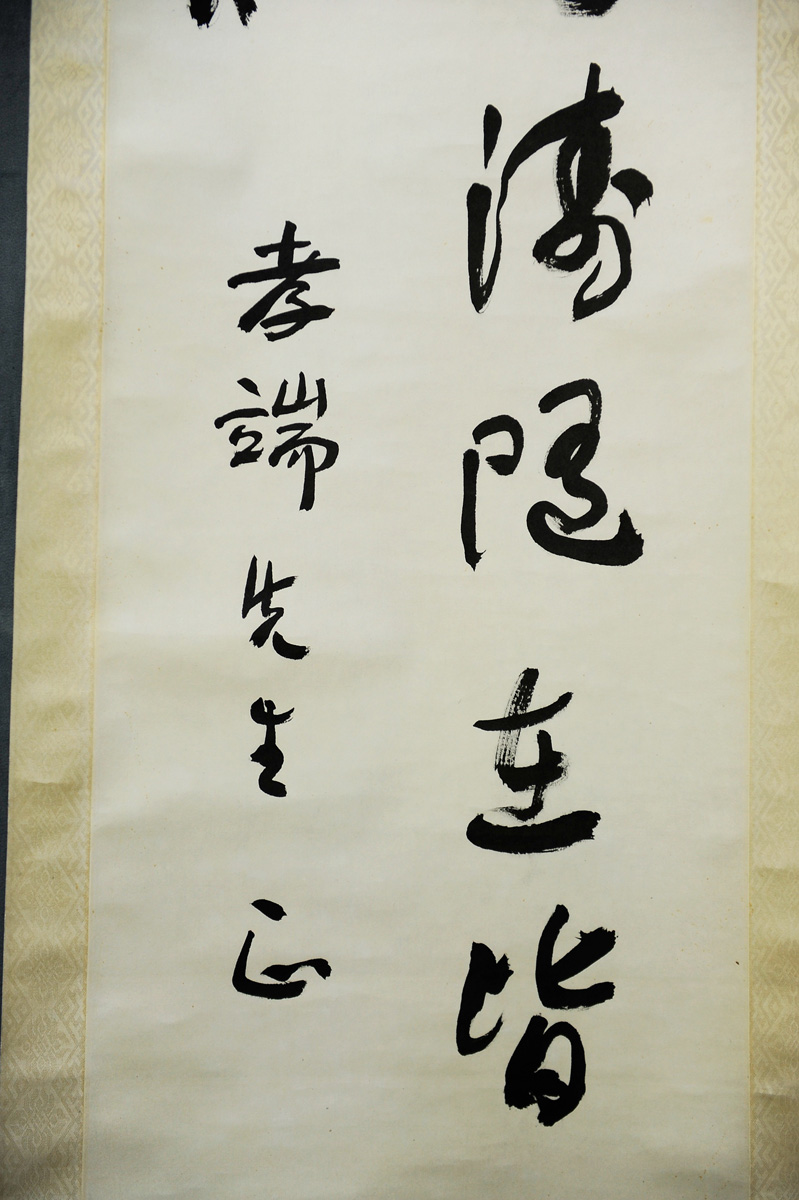 濤隨在皆
孝端先生正